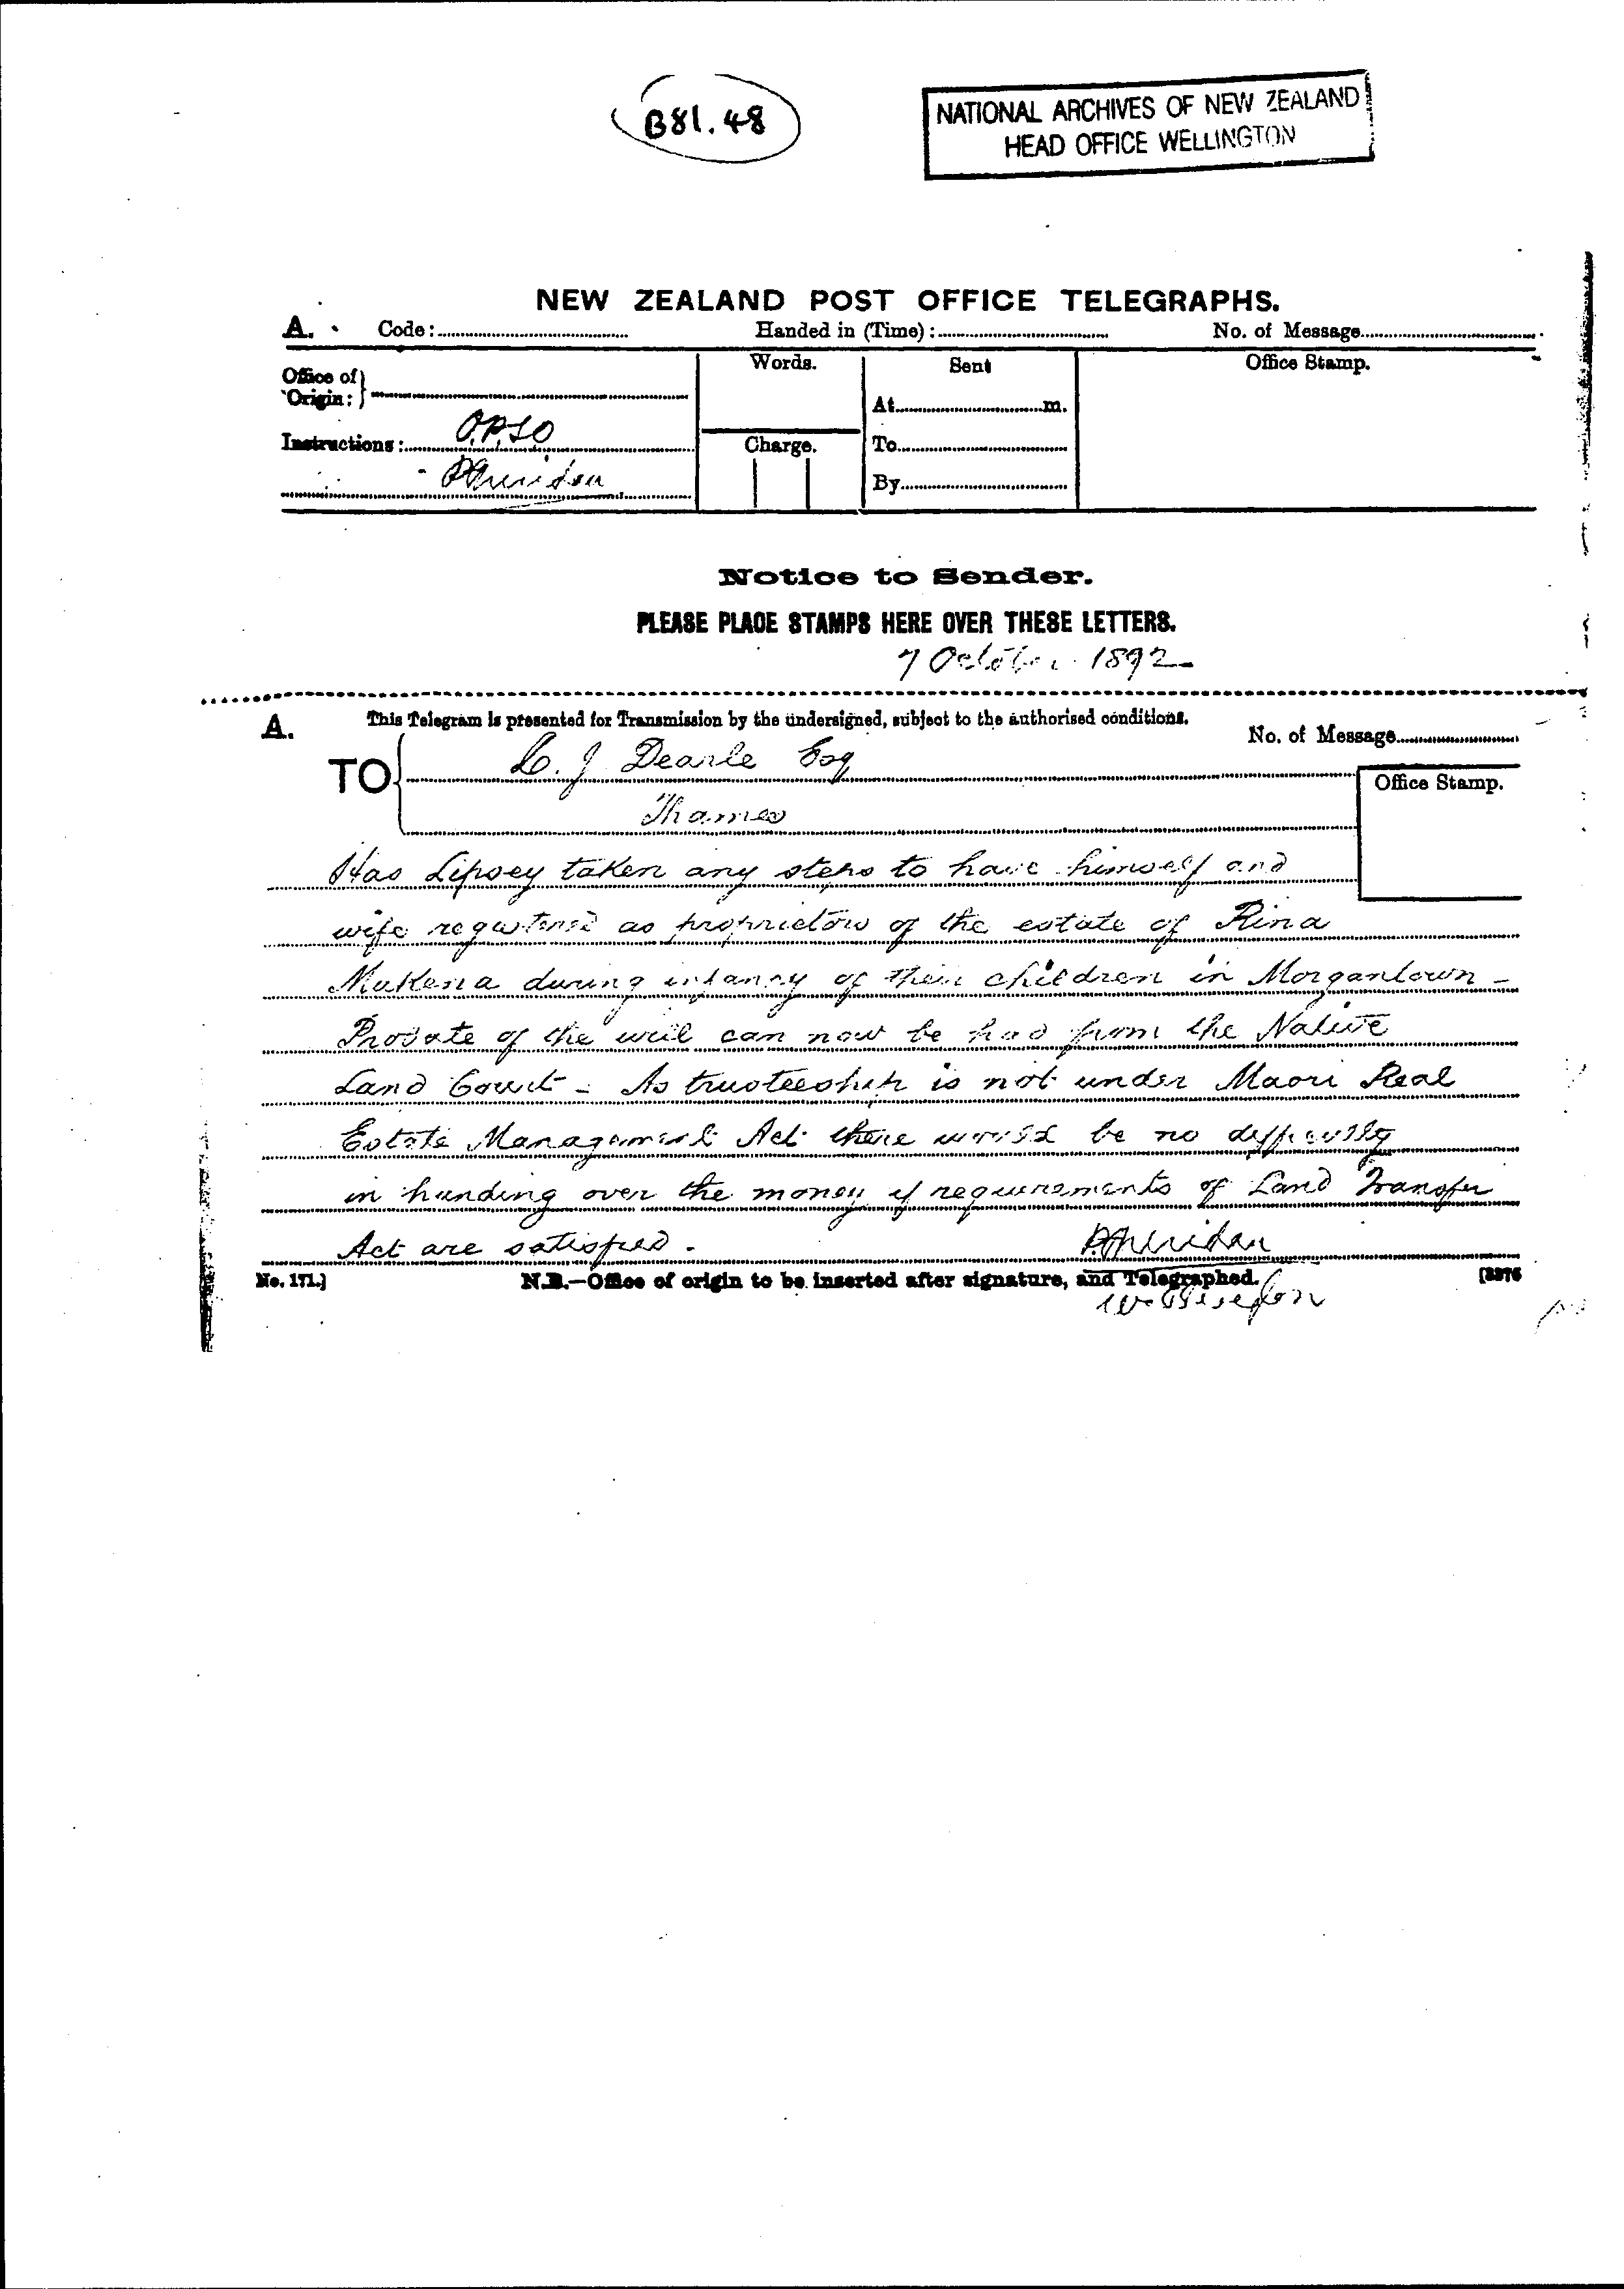 B81.48
NATIONAL ARCHIVES OF NEW ZEALAND
HEAD OFFICE WELLINGTON
NEW ZEALAND POST OFFICE TELEGRAPHS.
A. Code: Handed in (Time): No. of Message
Office of Origin: Words. Sent Office Stamp.
At m.
Instructions: O.P.SO Charge. To
PSheridan By
Notice to Sender.
PLEASE PLACE STAMPS HERE OVER THESE LETTERS.
7 October 1892
A. This Telegram is presented for Transmission by the undersigned, subject to the authorised conditions.
No. of Message
TO J. Dearle Esq
Office Stamp.
Thames
Has Lipsey taken any steps to have himself and
wife registered as proprietors of the estate of Rina
Makena during infancy of their children in Morgantown -
Probate of the will can now be had from the Native
Land Court - As trusteeship is not under Maori Real
Estate Management Act there would be no difficulty
in handing over the money if requirements of Land Transfer
Act are satisfied.
PSheridan
No. 171.] N.B.—Office of origin to be inserted after signature, and Telegraphed. [3376
Wellington